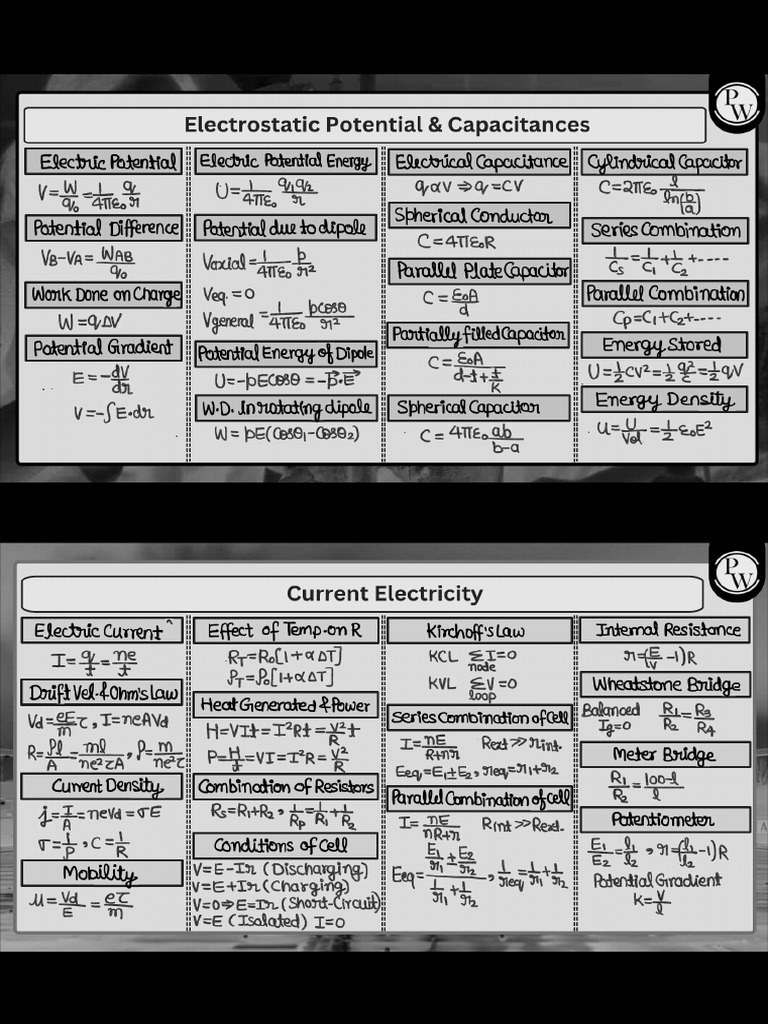 PW
Electrostatic Potential & Capacitances
Electric Potential
V=W/q₀=1/4πε₀ q/r
Potential Difference
V_B-V_A=W_AB/q₀
Work Done on Charge
W=qΔV
Potential Gradient
E=-dV/dr
V=-∫E·dr
Electric Potential Energy
U=1/4πε₀ q₁q₂/r
Potential due to dipole
Vaxial=1/4πε₀ p/r²
Veq.=0
Vgeneral=1/4πε₀ pcosθ/r²
Potential Energy of Dipole
U=-pEcosθ=-p⃗·E⃗
W.D. in rotating dipole
W=pE(cosθ₁-cosθ₂)
Electrical Capacitance
q∝V⇒q=CV
Spherical Conductor
C=4πε₀R
Parallel Plate Capacitor
C=ε₀A/d
Partially filled Capacitor
C=ε₀A/(d-t+t/K)
Spherical Capacitor
C=4πε₀ ab/(b-a)
Cylindrical Capacitor
C=2πε₀ l/ln(b/a)
Series Combination
1/Cs=1/C₁+1/C₂+----
Parallel Combination
Cp=C₁+C₂+----
Energy Stored
U=1/2CV²=1/2 q²/C=1/2 qV
Energy Density
u=U/Vol=1/2 ε₀E²
PW
Current Electricity
Electric Current^
I=q/t=ne/t
Drift Vel. & Ohm's Law
Vd=eE/m τ, I=neAVd
R=ρl/A=ml/ne²τA, ρ=m/ne²τ
Current Density
j=I/A=neVd=σE
σ=1/ρ, C=1/R
Mobility
μ=Vd/E=eτ/m
Effect of Temp. on R
R_T=R₀[1+αΔT]
ρ_T=ρ₀[1+αΔT]
Heat Generated & Power
H=VIt=I²Rt=V²t/R
P=H/t=VI=I²R=V²/R
Combination of Resistors
Rs=R₁+R₂, 1/Rp=1/R₁+1/R₂
Conditions of Cell
V=E-Ir (Discharging)
V=E+Ir (Charging)
V=0⇒E=Ir (Short-Circuit)
V=E (Isolated) I=0
Kirchoff's Law
KCL ΣI=0 node
KVL ΣV=0 loop
Series Combination of Cell
I=nE/R+nr Rext>>rint.
Eeq=E₁±E₂, req=r₁+r₂
Parallel Combination of cell
I=nE/nR+r Rint>>Rext.
Eeq=(E₁/r₁±E₂/r₂)/(1/r₁+1/r₂), 1/req=1/r₁+1/r₂
Internal Resistance
r=(E/V-1)R
Wheatstone Bridge
Balanced Ig=0 R₁/R₂=R₃/R₄
Meter Bridge
R₁/R₂=100-l/l
Potentiometer
E₁/E₂=l₁/l₂, r=(l₁/l₂-1)R
Potential Gradient
K=V/l